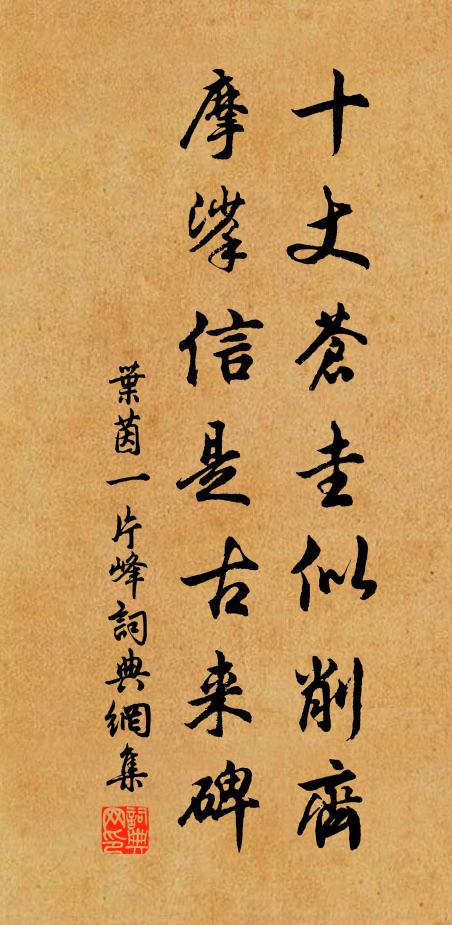 十丈蒼圭似削齊
摩挲信是古来碑
葉茵一片峰詞典網集
詞典網印